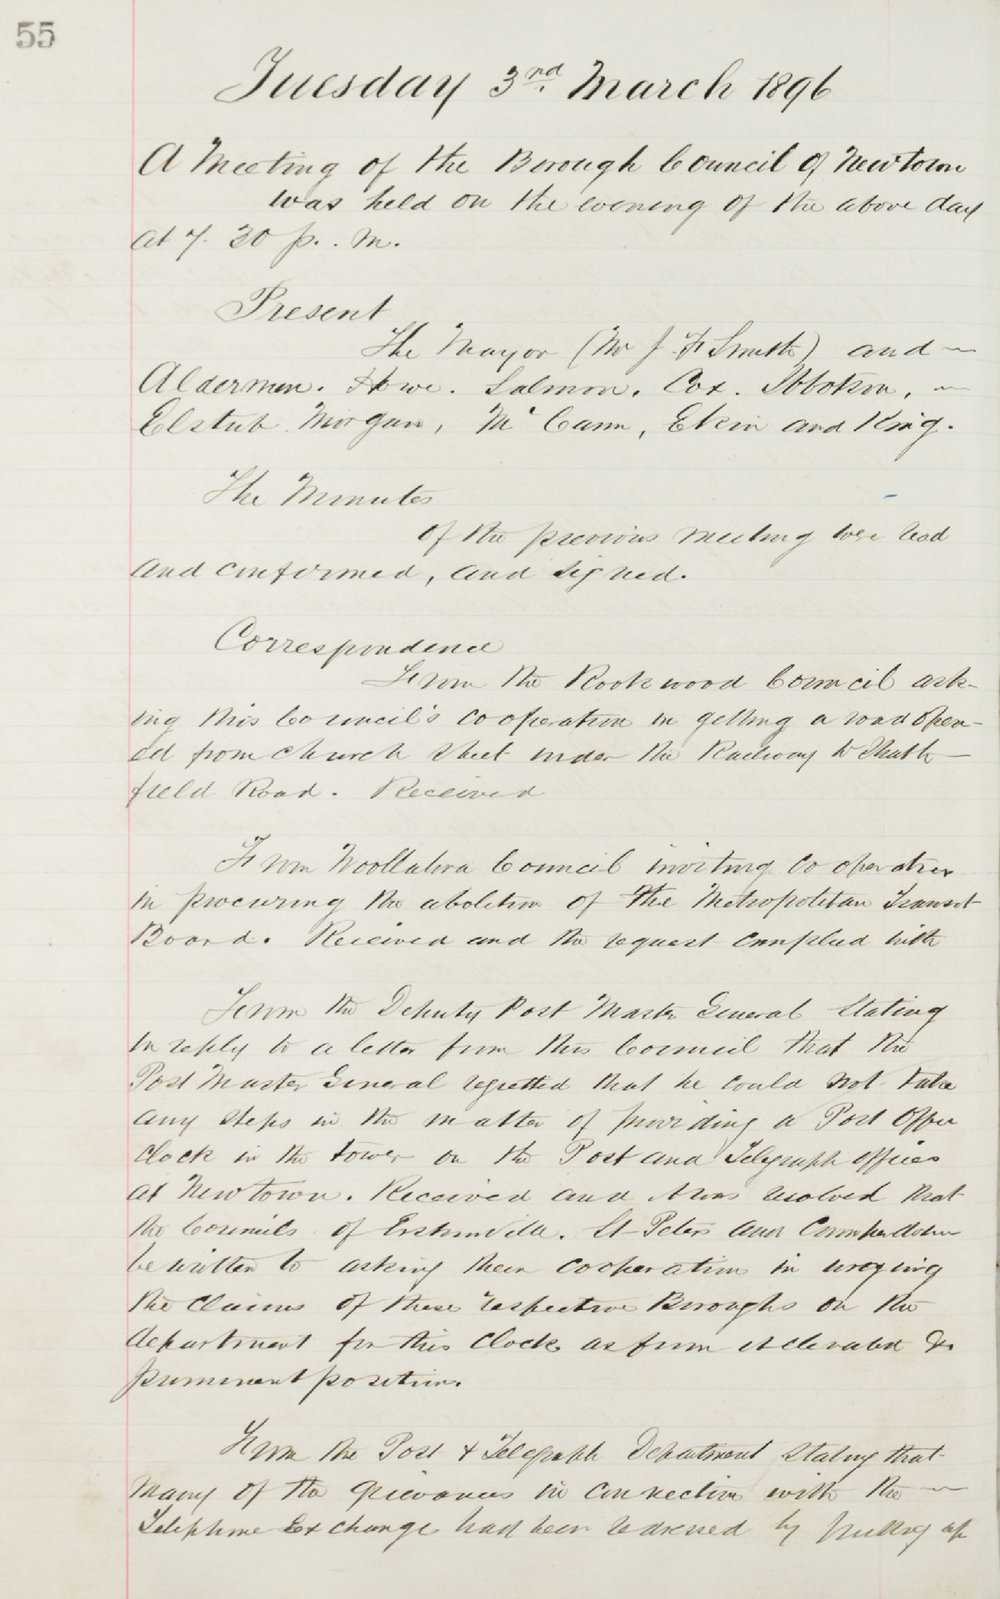 55
Tuesday 3rd. March 1896
A Meeting of the Borough Council of Newtown
was held on the evening of the above day
at 7. 30 p. . m.
Present
The Mayor (Mr J. F Smith) and
Aldermen. Howe. Salmon. Cox. Ibbotson,
Elstub. Morgan, McCann, Elkin and King.
The Minutes
of the previous meeting were read
and confirmed, and signed.
Correspondence
From the Rookwood Council ask-
ing this Council's cooperation in getting a road open-
ed from Church Street under the Railway to
field Road. Received
From Woollahra Council inviting Co operation
in procuring the abolition of the Metropolitan Transit
Board. Received and the request complied with
From the Deputy Post Master General Stating
in reply to a letter from this Council that the
Post Master General regretted that he could not take
any steps in the matter of providing a Post Office
Clock in the tower on the Post and Telegraph offices
at Newtown. Received and it was resolved that
the Councils of Erskineville. St Peters and Camperdown
be written to asking their cooperation in urging
the claims of these respective Boroughs on the
department for this Clock as from its elevated &
prominent position.
From the Post & Telegraph Department stating that
many of the grievances in connection with the
Telephone Exchange had been redressed by putting up